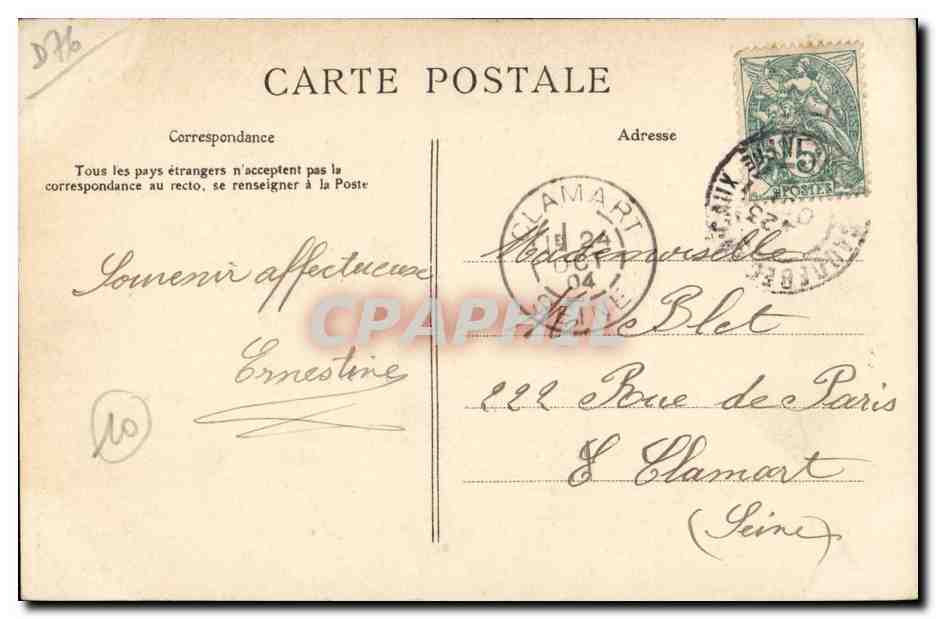 D76
CARTE POSTALE
Correspondance
Tous les pays étrangers n'acceptent pas la
correspondance au recto, se renseigner à la Poste
Souvenir affectueux
Ernestine
10
Adresse
5
POSTES
CLAMART
24
OCT
04
SEINE
CPAPHIL
Mademoiselle
Blet
222 Rue de Paris
Clamart
(Seine)